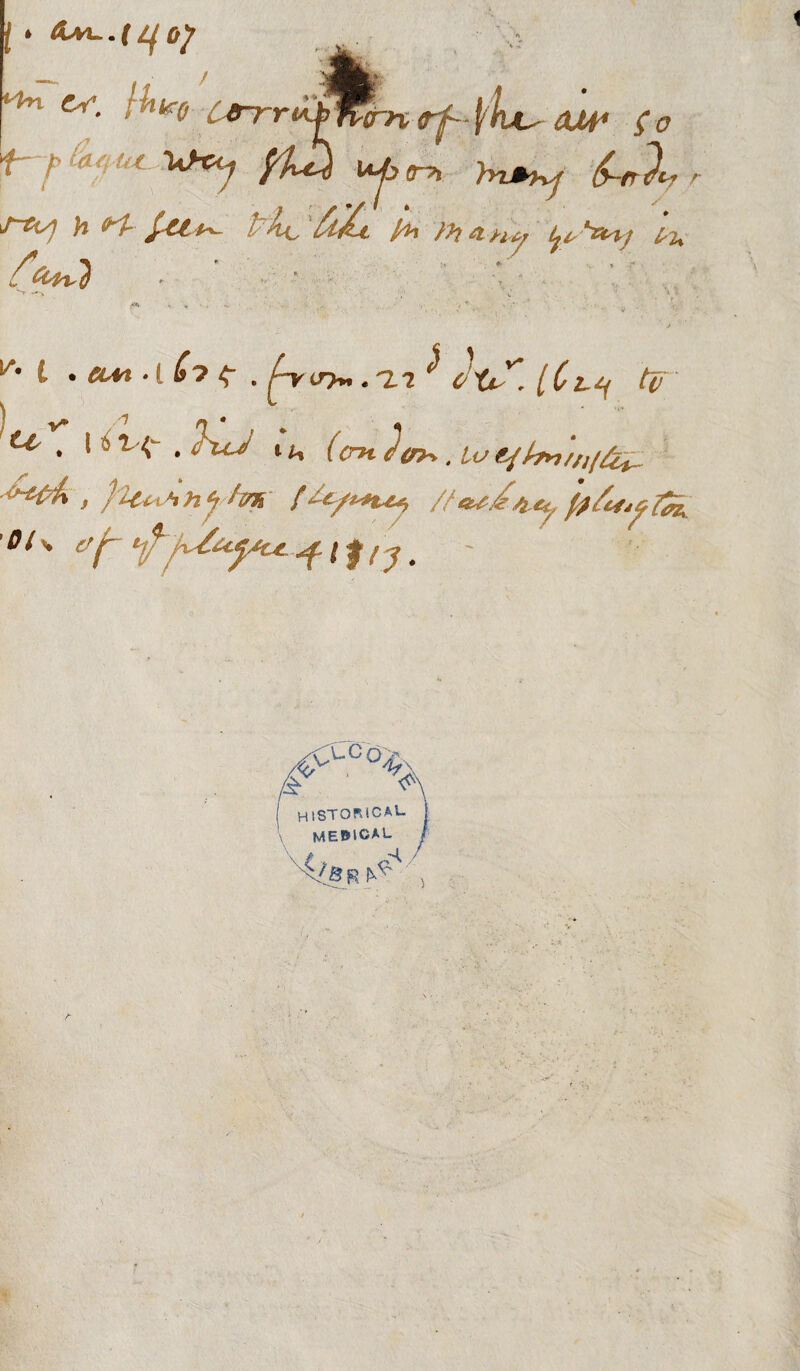 An. 1407
er. thro corruption of the air so
plague was shed upon many body
was not seen the like in many years in
Land
1. an. 1625. from. 22 Decr. 1624 to
1625. died in London. westminster
Lambeth, Newington stepney Hackney Islington
of ye plague 41313.
WELLCOME
HISTORICAL
MEDICAL
LIBRARY